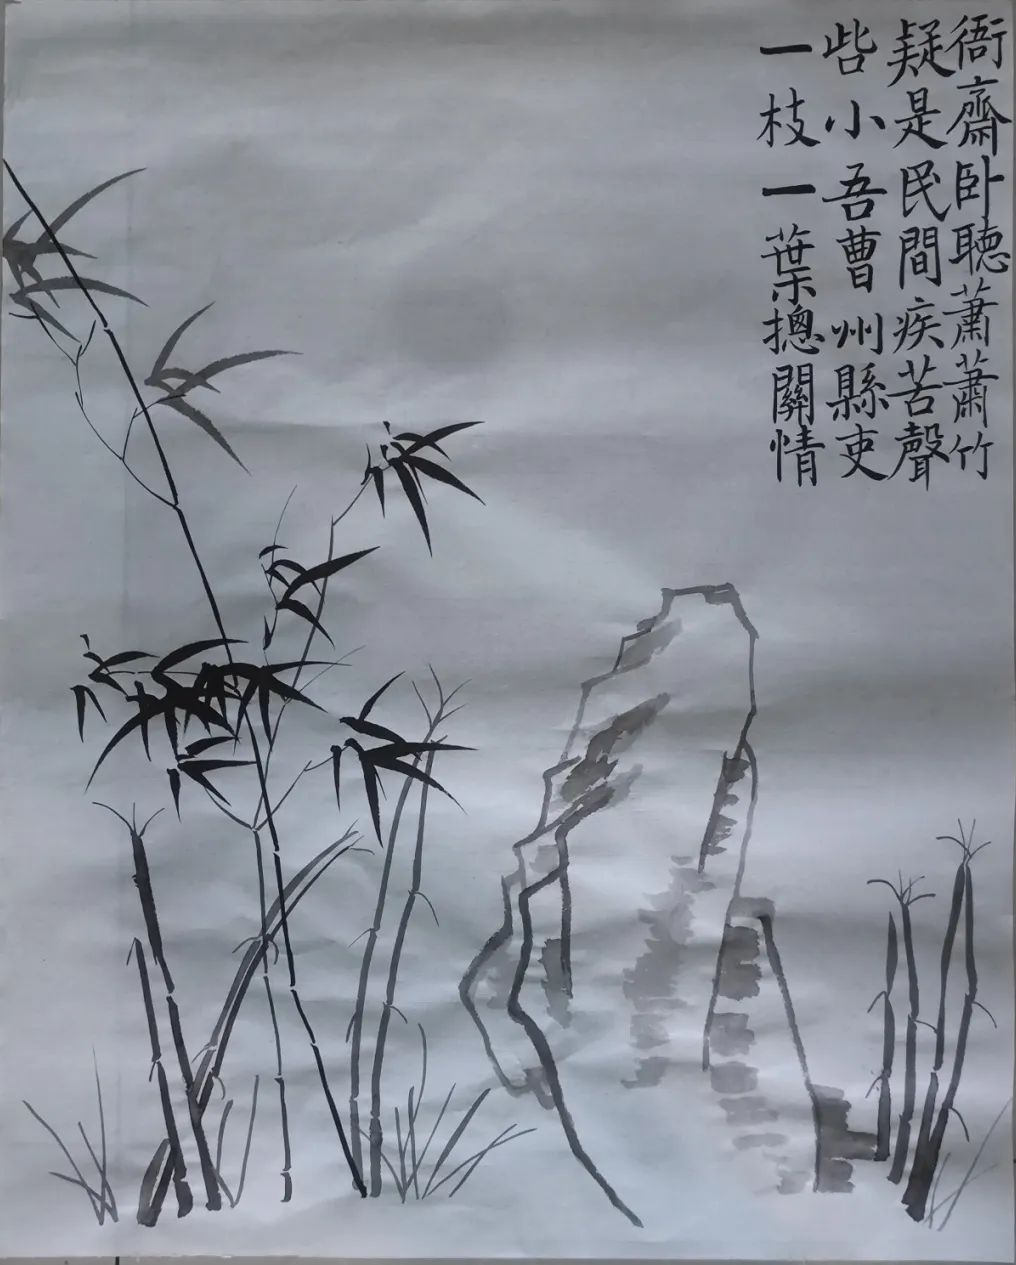 衙齋卧聽蕭蕭竹
疑是民間疾苦聲
呰小吾曹州縣吏
一枝一葉摠關情